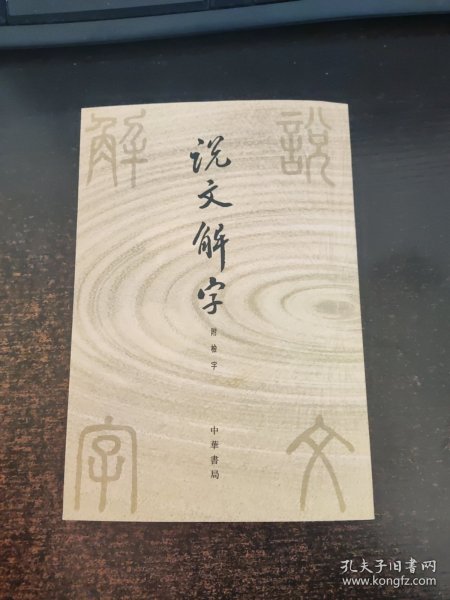 説文
解字
说文解字
附检字
中華書局
孔夫子旧书网
www.kongfz.com